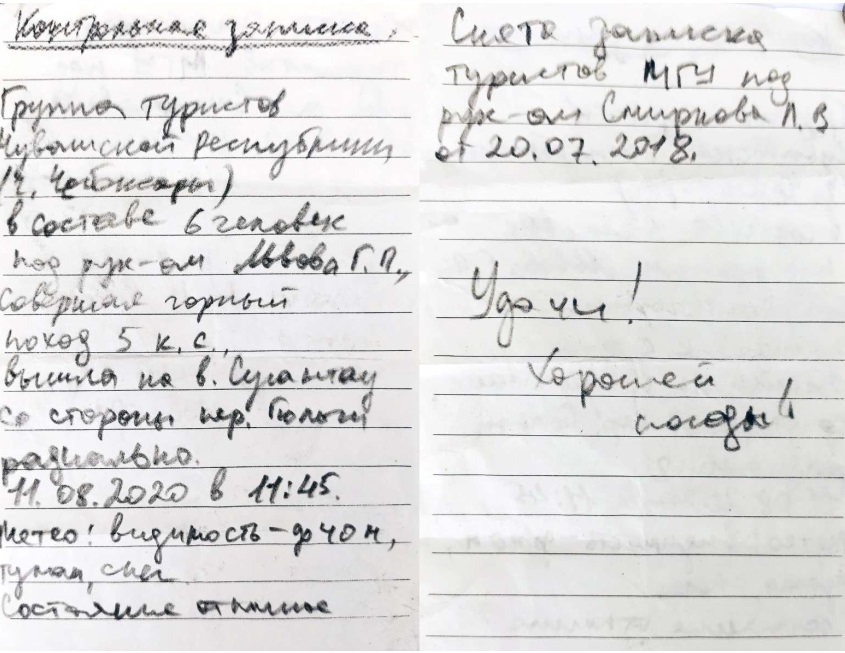 Контрольная записка.
Группа туристов
Чувашской Республики
(г. Чебоксары)
в составе 6 человек
под рук-ом Львова Г.П.,
совершая горный
поход 5 к.с.,
вышла на в. Сугантау
со стороны пер. Гологи
радиально.
11.08.2020 в 11:45.
Метео: видимость – до 40 м,
туман, снег
Состояние отличное
Снята записка
туристов МГУ под
рук-ом Смирнова А.В
от 20.07.2018.
Удачи!
Хорошей
погоды!